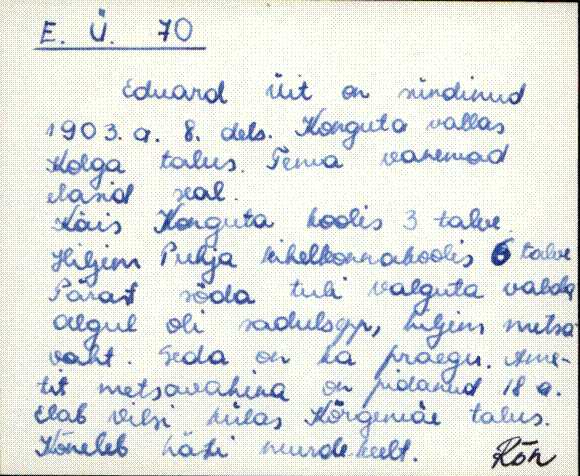 E. Ü. 70
Eduard Üit on sündinud
1903. a. 8. dets. Konguta vallas
Kolga talus. Tema vanemad
elasid seal.
Käis Konguta koolis 3 talve.
Hiljem Puhja kihelkonnakoolis 6 talve
Pärast sõda tuli Valguta valda
Algul oli sadulsepp, hiljem metsa
vaht. Seda on ka praegu. Ame-
tit metsavahina on pidanud 18 a.
Elab Vilsi külas Kõrgemäe talus.
Kõneleb hästi murdekeelt.
Rõn